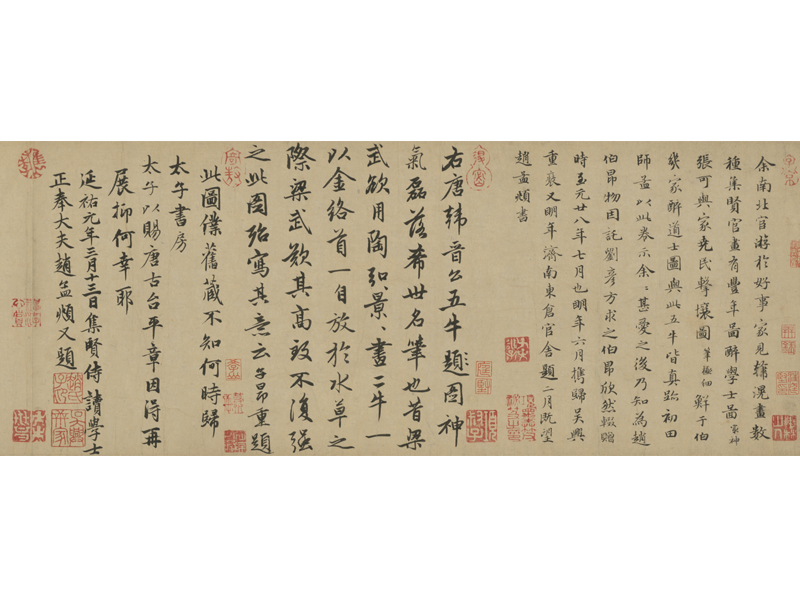 余南北宦游於好事家見韓滉畫數
種集賢官畫有豐年啚醉學士啚最神
張可與家堯民擊壤圖筆極細鮮于伯
幾家醉道士圖與此五牛皆真跡初田
師孟以此卷示余余甚愛之後乃知為趙
伯昂物因託劉彥方求之伯昂欣然輟贈
時至元廿八年七月也明年六月攜歸吳興
重裝又明年濟南東倉官舍題二月既望
趙孟頫書
右唐韓晉公五牛題圖神
氣磊落希世名筆也昔梁
武欲用陶弘景、畫二牛一
以金絡首一自放於水草之
際梁武歎其高致不復強
之此圖殆寫其意云子昂重題
此圖僕舊藏不知何時歸
太子書房
太子以賜唐古台平章因得再
展抑何幸耶
延祐元年三月十三日集賢侍讀學士
正奉大夫趙孟頫又題